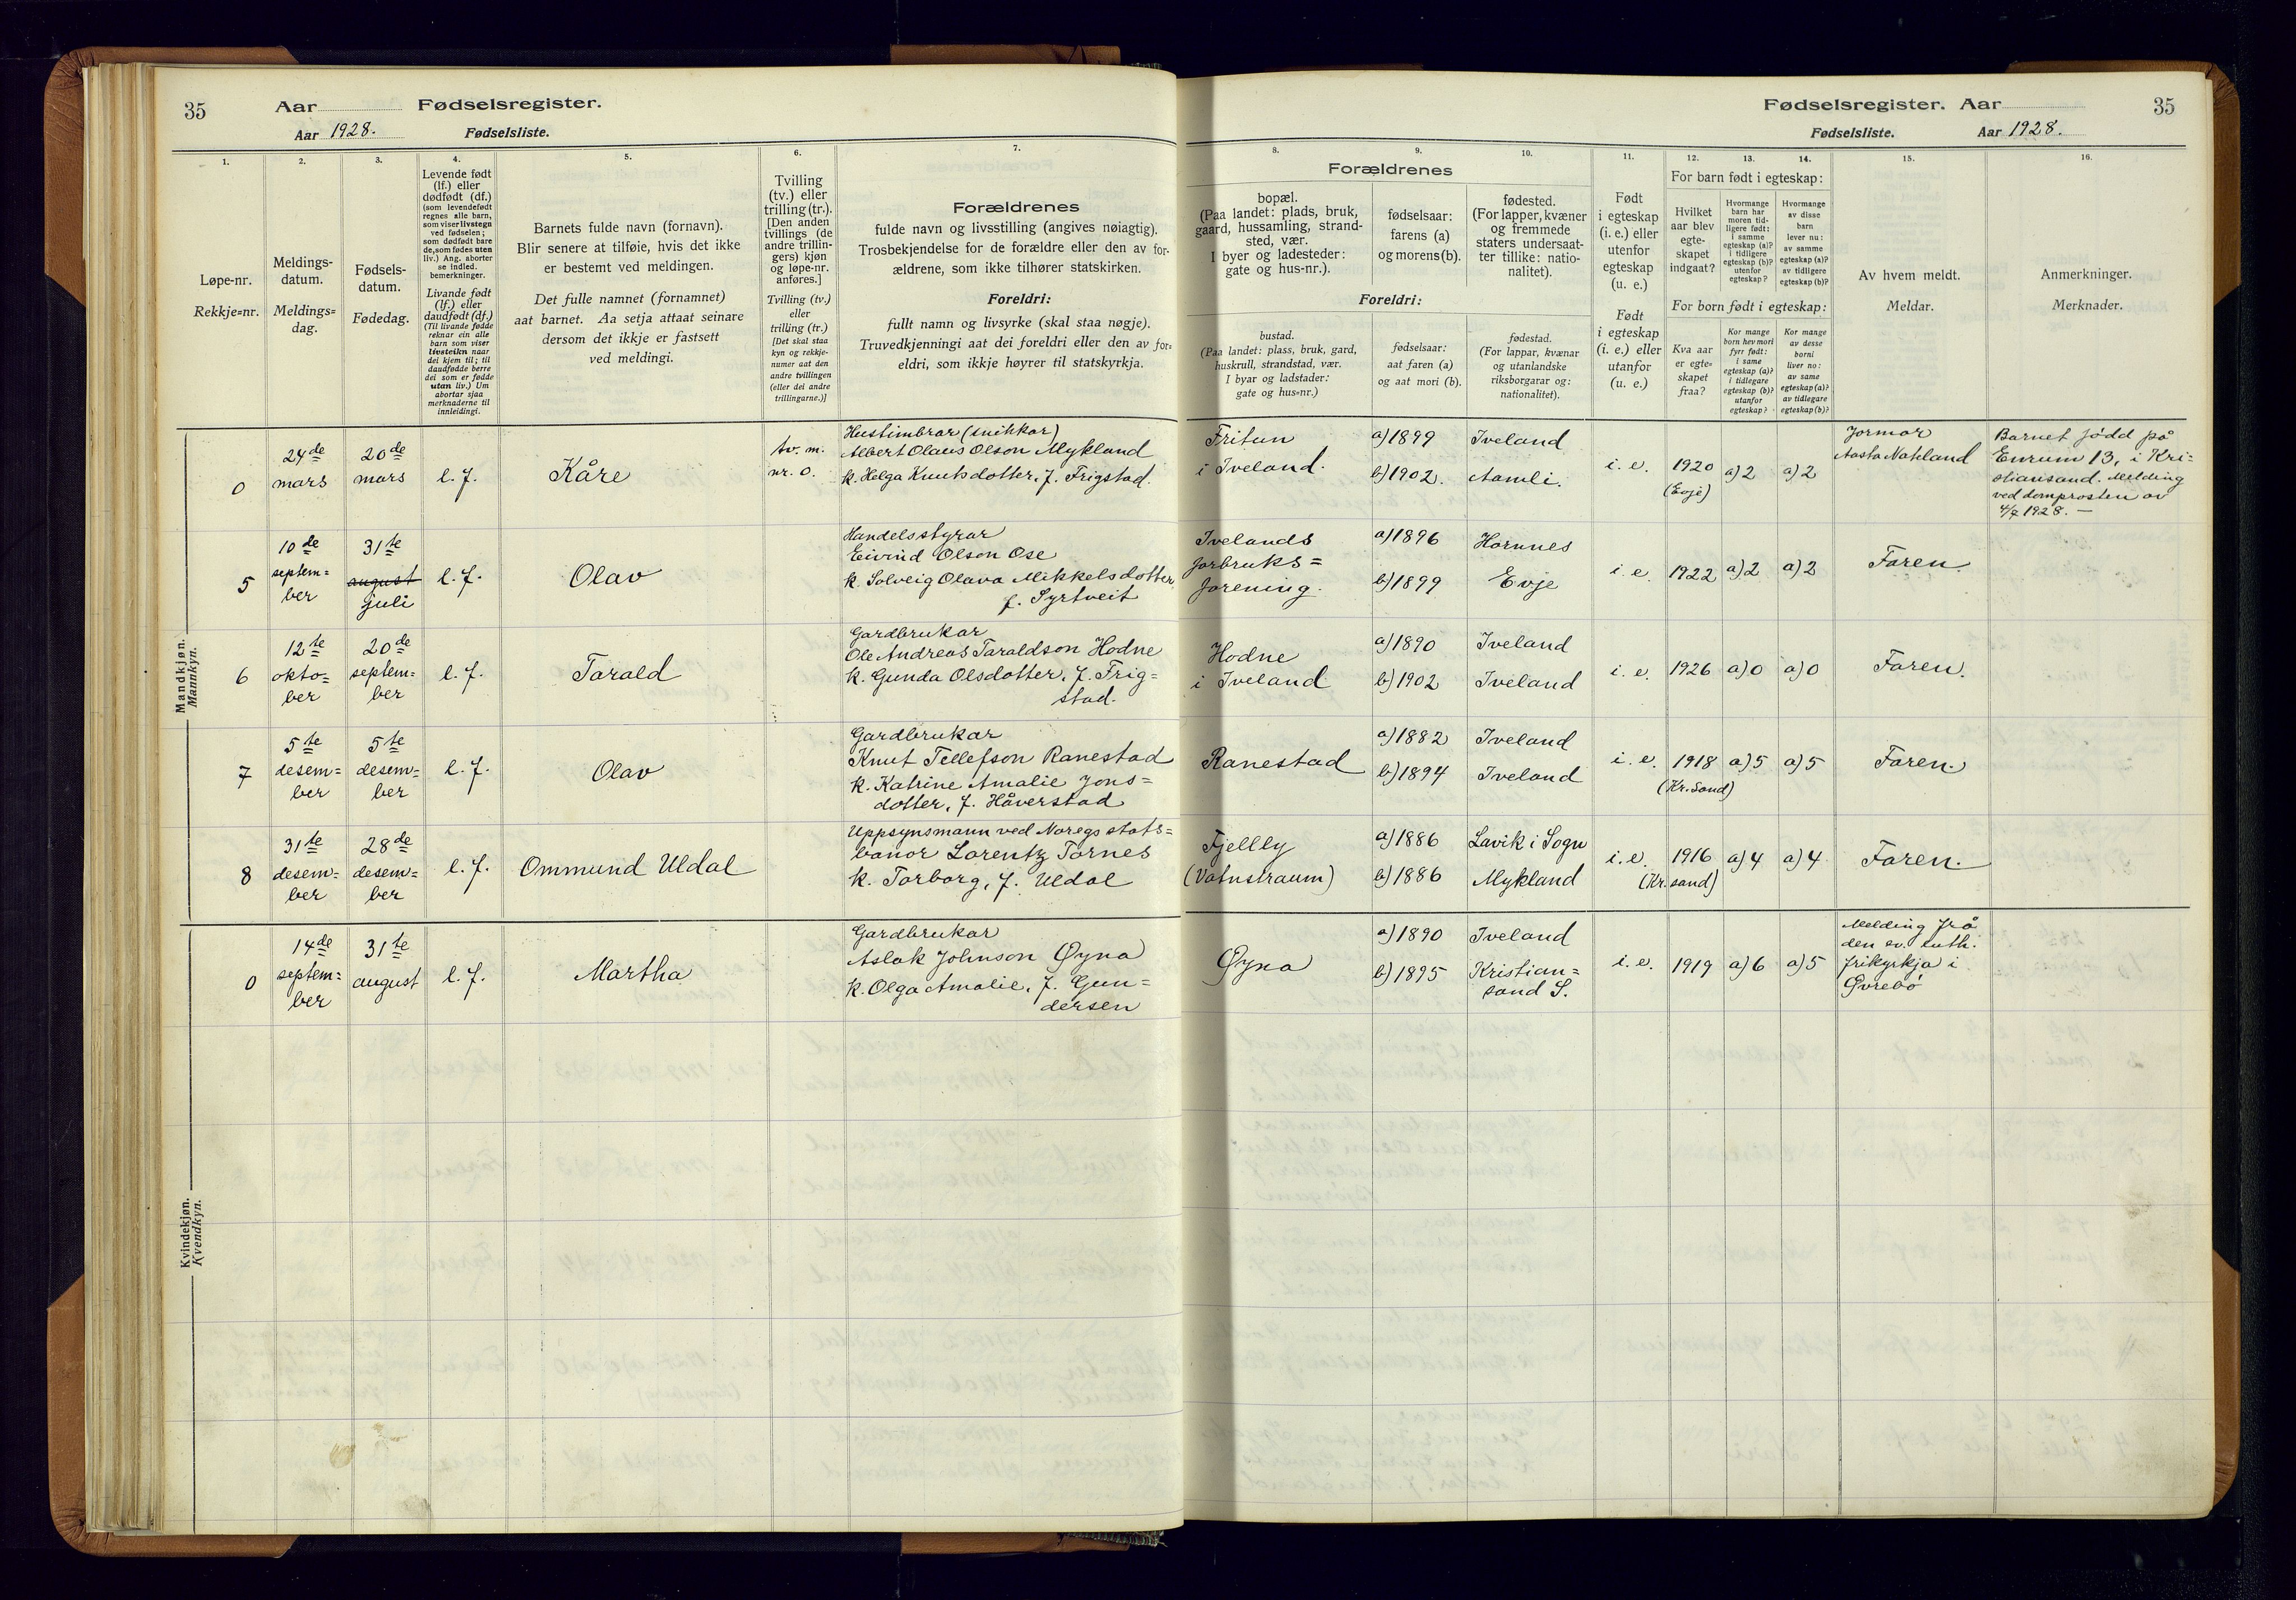 35
Aar
Fødselsregister.
Aar 1928.
Fødselsliste.
1.
2.
3.
4.
5.
6.
7.
Løpe-nr.
Rekkje=nr.
Meldings-
datum.
Meldings=
dag.
Fødsels-
datum.
Fødedag.
Levende født
(lf.) eller
dødfødt (df.)
(som levendefødt
regnes alle barn,
som viser livstegn
ved fødselen;
som dødfødt bare
de, som fødes uten
liv.) Ang. aborter
se indled.
bemerkninger.
Livande født
(lf.) eller
daudfødt (df.)
(Til livande fødde
reknar ein alle
barn som viser
livsteikn naar
dei kjem til; til
daudfødde berre
dei som er fødde
utan liv.) Um
abortar sjaa
merknaderne til
innleidingi.
Barnets fulde navn (fornavn).
Blir senere at tilføie, hvis det ikke
er bestemt ved meldingen.
Det fulle namnet (fornamnet)
aat barnet. Aa setja attaat seinare
dersom det ikkje er fastsett
ved meldingi.
Tvilling
(tv.) eller
trilling (tr.).
[Den anden
tvillings (de
andre trillin-
gers) kjøn
og løpe-nr.
anføres.]
Tvilling (tv.)
eller
trilling (tr.)
[Det skal staa
kyn og rekkje-
numer aat den
andre tvillingen
(eller dei andre
trillingarne.)]
Forældrenes
fulde navn og livsstilling (angives nøiagtig).
Trosbekjendelse for de forældre eller den av for-
ældrene, som ikke tilhører statskirken.
Foreldri:
fullt namn og livsyrke (skal staa nøgje).
Truvedkjenningi aat dei foreldri eller den av for=
eldri, som ikkje høyrer til statskyrkja.
Mandkjøn.
Mannkyn.
0
24de
mars
20de
mars
l. f.
Kåre
tv. m.
nr. 0.
Hustimbrar (snikkar)
Albert Olaus Olson Mykland
k. Helga Knutsdotter, f. Frigstad.
5
10de
septem=
ber
31te
august
juli
l. f.
Olav
Handelsstyrar
Eivind Olson Ose
k. Solveig Olava Mikkelsdotter
f. Syrtveit
6
12te
okto=
ber
20de
septem=
ber
l. f.
Tarald
Gardbrukar
Ole Andreas Taraldson Hodne
k. Gunda Olsdotter, f. Frig=
stad.
7
5te
desem=
ber
5te
desem=
ber
l. f.
Olav
Gardbrukar
Knut Tellefson Ranestad
k. Katrine Amalie Jons=
dotter, f. Håverstad
8
31te
desem=
ber
28de
desem=
ber
l. f.
Ommund Uldal
Uppsynsmann ved Noregs stats=
banor Lorentz Tornes
k. Torborg, f. Uldal
Kvindekjøn.
Kvendkyn.
0
14de
septem=
ber
31te
august
l. f.
Martha
Gardbrukar
Aslak Johnson Øyna
k. Olga Amalie, f. Gun=
dersen
Fødselsregister. Aar
35
Fødselsliste.
Aar 1928.
8.
9.
10.
11.
12.
13.
14.
15.
16.
Forældrenes
bopæl.
(Paa landet: plads, bruk,
gaard, hussamling, strand-
sted, vær.
I byer og ladesteder:
gate og hus-nr.).
fødselsaar:
farens (a)
og morens (b).
fødested.
(For lapper, kvæner
og fremmede
staters undersaat-
ter tillike: natio-
nalitet).
Foreldri:
bustad.
(Paa landet: plass, bruk, gard,
huskrull, strandstad, vær.
I byar og ladstader:
gate og hus=nr.)
fødselsaar:
aat faren (a)
og aat mori (b).
fødestad.
(For lappar, kvænar
og utanlandske
riksborgarar og:
nationalitet).
Født
i egteskap
(i. e.) eller
utenfor
egteskap
(u. e.)
Født
i egteskap
(i. e.) eller
utanfor
(u. e.)
For barn født i egteskap:
Hvilket
aar blev
egte-
skapet
indgaat?
Hvormange
barn har
moren tid-
ligere født:
i samme
egteskap (a)?
i tidligere
egteskap (b)?
utenfor
egteskap?
Hvormange
av disse
barn
lever nu:
av samme
egteskap (a)?
av tidligere
egteskap (b)?
For born født i egteskap:
Kva aar
er egte=
skapet
fraa?
Kor mange
born hev mori
fyrr født:
i same
egteskap (a)?
i tidlegare
egteskap (b)?
utanfor
egteskap?
Kor mange
av desse
borni
liver no:
av same
egteskap (a)?
av tidlegare
egteskap (b)?
Av hvem meldt.
Meldar.
Anmerkninger.
Merknader.
Fritun
i Iveland.
a) 1899
b) 1902.
Iveland
Aamli.
i. e.
1920
(Evje)
a) 2
a) 2
Jormor
Aasta Nateland
Barnet fødd på
Enrum 13, i Kri=
stiansand. Melding
ved domprosten av
4/7 1928. —
Ivelands
forbruks=
forening.
a) 1896
b) 1899
Hornnes
Evje
i. e.
1922
a) 2
a) 2
Faren
Hodne
i Iveland
a) 1890
b) 1902
Iveland
Iveland
i. e.
1926
a) 0
a) 0
Faren.
Ranestad
a) 1882
b) 1894
Iveland
Iveland
i. e.
1918
(Kr. sand)
a) 5
a) 5
Faren.
Fjelly
(Vatnstraum)
a) 1886
b) 1886
Lavik i Sogn
Mykland
i. e.
1916
(Kr. sand)
a) 4
a) 4
Faren.
Øyna
a) 1890
b) 1895
Iveland
Kristian=
sand S.
i. e.
1919
a) 6
a) 5
Melding frå
den ev. luth.
frikyrkja i
Øvrebø